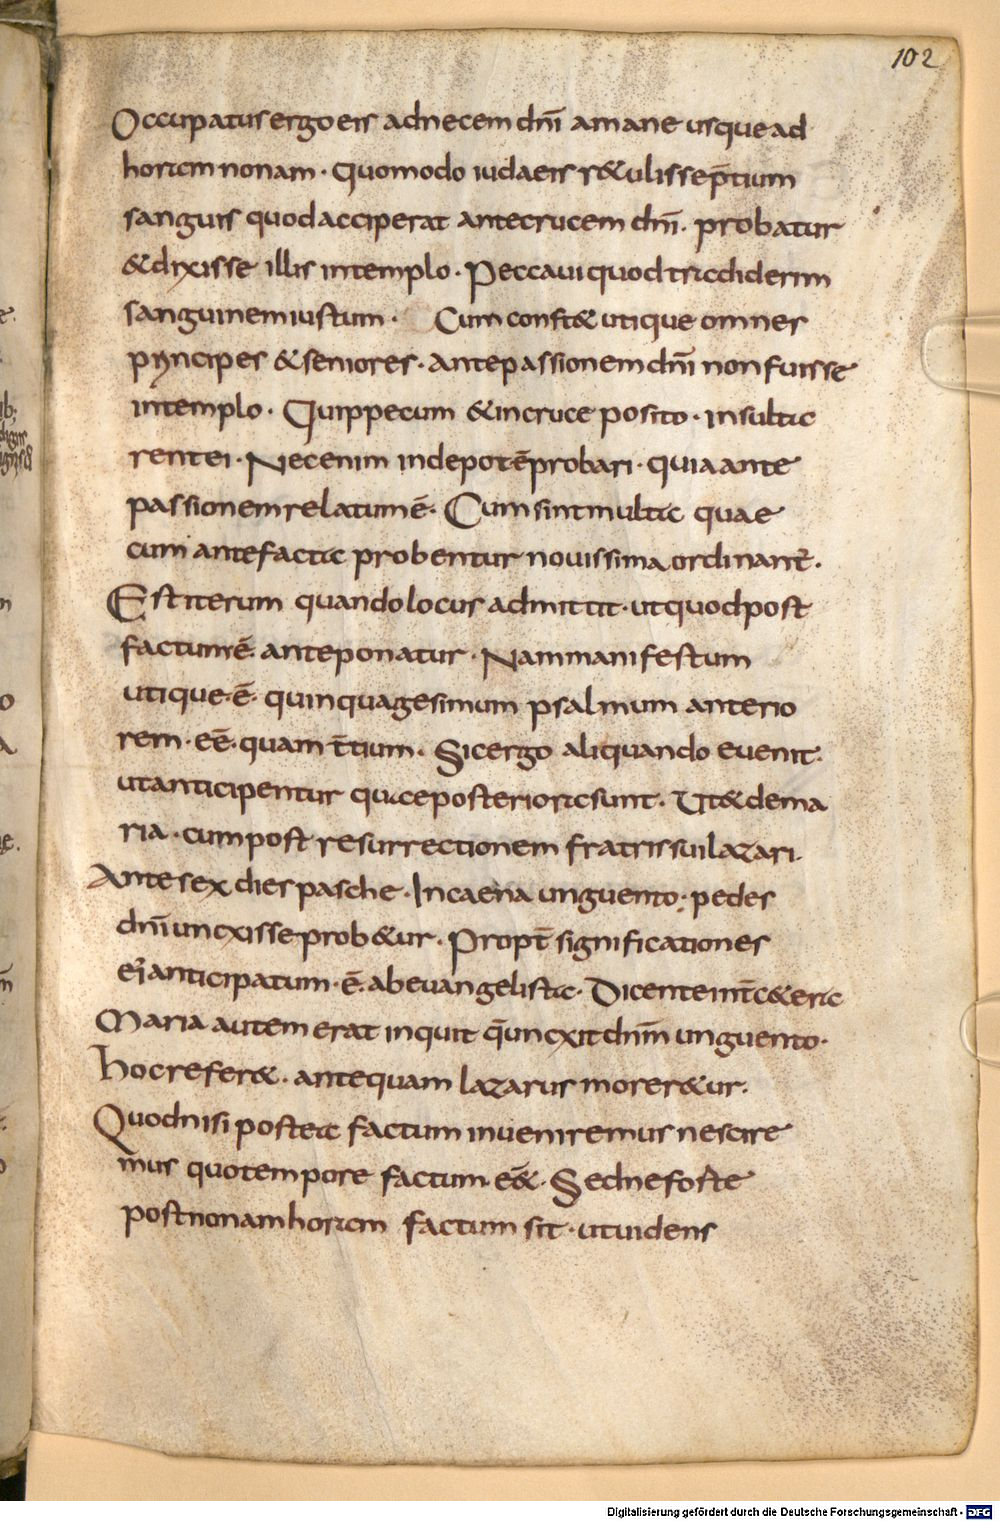 102
Occupatis ergo eis ad necem dnī a mane usque ad
horam nonam · Quomodo iudaeis r&ulisse p̄tium
sanguis quod acciperat ante crucem dnī · probatur
& dixisse illis in templo · Peccaui quod tradiderim
sanguinem iustum · Cum const& utique omnes
principes & seniores · ante passionem dnī non fuisse
in templo · Quippe cum & in cruce posito · insulta
rent ei · Nec enim inde potē probari · quia ante
passionem relatum ē · Cum sint multa quae
cum ante facta probentur nouissima ordinant̄ ·
Est iterum quando locus admittit · ut quod post
factum ē anteponatur · Nam manifestum
utique · ē · quinquagesimum psalmum anterio
rem · eē · quam t̄tium · Sic ergo aliquando euenit ·
ut anticipentur quae posteriora sunt · Ut & de ma
ria · cum post resurrectionem fratris sui lazari ·
Ante sex dies pasche · In caena unguento · pedes
dnī unxisse prob&ur · Propt̄ significationes
ei anticipatum · ē · ab euangelista · Dicente int̄ c&era
Maria autem erat inquit q̄ unxit dnm̄ unguento ·
Hoc refer& · antequam lazarus morer&ur ·
Quod nisi postea factum inueniremus nescire
mus quo tempore factum · eē& · Sed ne forte
post nonam horam factum sit · ut uidens
Digitalisierung gefördert durch die Deutsche Forschungsgemeinschaft - DFG